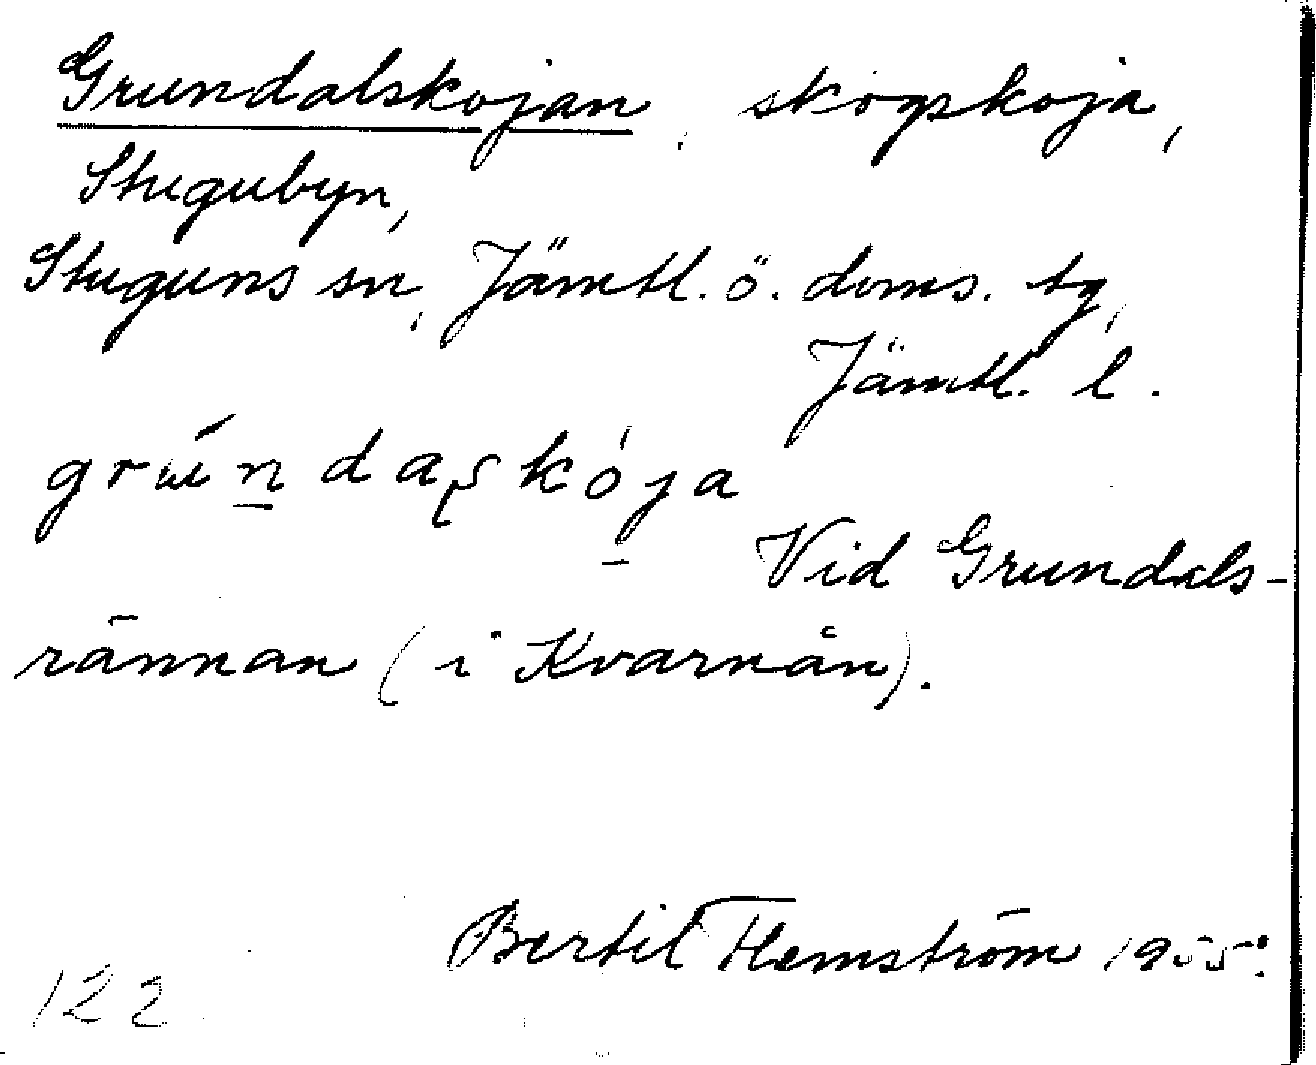 Grundalskojan, skogskoja,
Stugubyn,
Stuguns sn, Jämtl. ö. doms. tg,
Jämtl. l.
Vid Grundals-
rännan (i Kvarnån).
Bertil Flemström 1955.
122